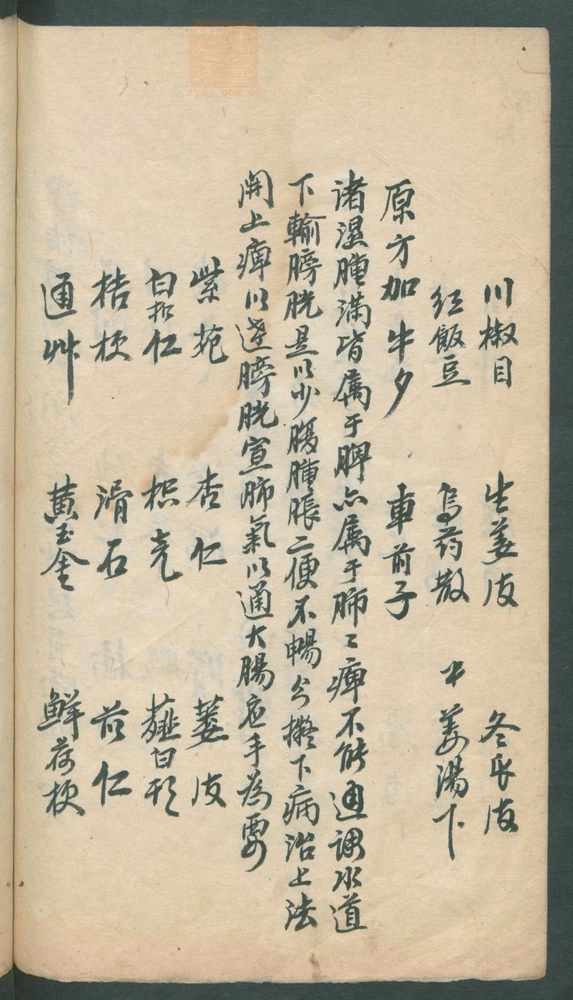 川椒目 生姜皮 冬瓜皮
红飯豆 烏药散 干姜湯下
原方加牛夕 車前子
诸濕腫滿皆属于脾亦属于肺〻痺不能通調水道
下輸膀胱是以少腹腫脹二便不暢兹擬下病治上法
開上痺以逹膀胱宣肺氣以通大腸应手為要
紫苑 杏仁 蒌皮
白蔻仁 枳壳 薤白
桔梗 滑石 苡仁
通艸 黄玉金 鮮荷梗